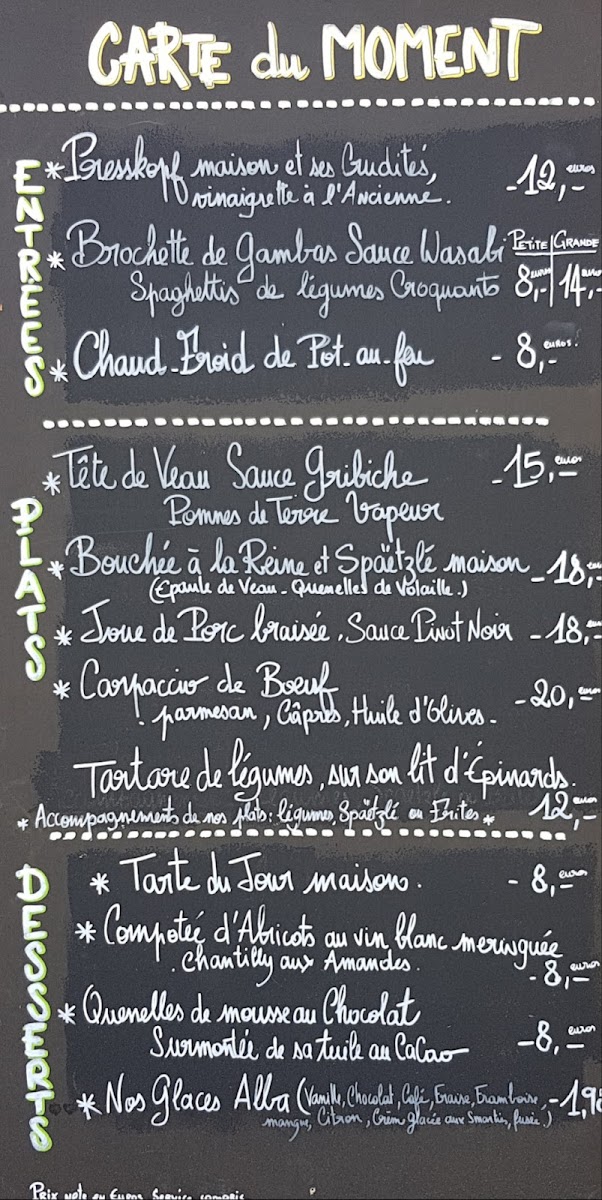 CARTE du MOMENT
ENTREES
* Presskopf maison et ses Crudités, - 12,- euros
vinaigrette à l'Ancienne.
* Brochette de Gambas Sauce Wasabi PETITE | GRANDE
Spaghettis de légumes Croquants 8,- euros | 14,-
* Chaud-Froid de Pot-au-feu - 8,- euros.
PLATS
* Tête de Veau Sauce Gribiche - 15,- euros
Pommes de Terre Vapeur
* Bouchée à la Reine et Spaëtzlé maison - 18,-
(Epaule de Veau - Quenelles de Volaille.)
* Joue de Porc braisée, Sauce Pinot Noir - 18,-
* Carpaccio de Boeuf - 20,-
parmesan, Câpres, Huile d'Olives -
Tartare de légumes, sur son lit d'Épinards.
12,- euros
* Accompagnements de nos plats: légumes, Spaëtzlé ou Frites *
DESSERTS
* Tarte du Jour maison. - 8,- euros
* Compotée d'Abricots au vin blanc meringuée
Chantilly aux Amandes. - 8,- euros
* Quenelles de mousse au Chocolat
Surmontée de sa tuile au CaCao - 8,- euros
* Nos Glaces Alba (Vanille, Chocolat, Café, Fraise, Framboise, - 1,9
mangue, Citron, Crèm glacée aux Smarties, fusée.)
Prix nets en Euros Service compris